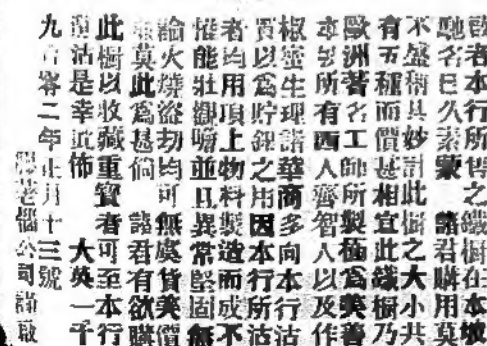 啟者本行所售之鐵櫥在本坡
馳名已久素蒙 諸君購用莫
不盛稱其妙計此櫥之大小共
有五種而價甚相宜此鐵櫥乃
歐洲著名工師所製極爲美善
本坡所有西人齊智人以及作
椒蜜生理諸華商多向本行沽
買以爲貯銀之用因本行所沽
者均用頂上物料製造而成不
惟能壯觀瞻並且異常堅固無
論火燒盜刼均可無虞貨美價
廉莫此爲甚倘 諸君有欲購
此櫥以收藏重寶者可至本行
沽是幸此佈 大英一千
九百零二年正月十三號
公司謹啟